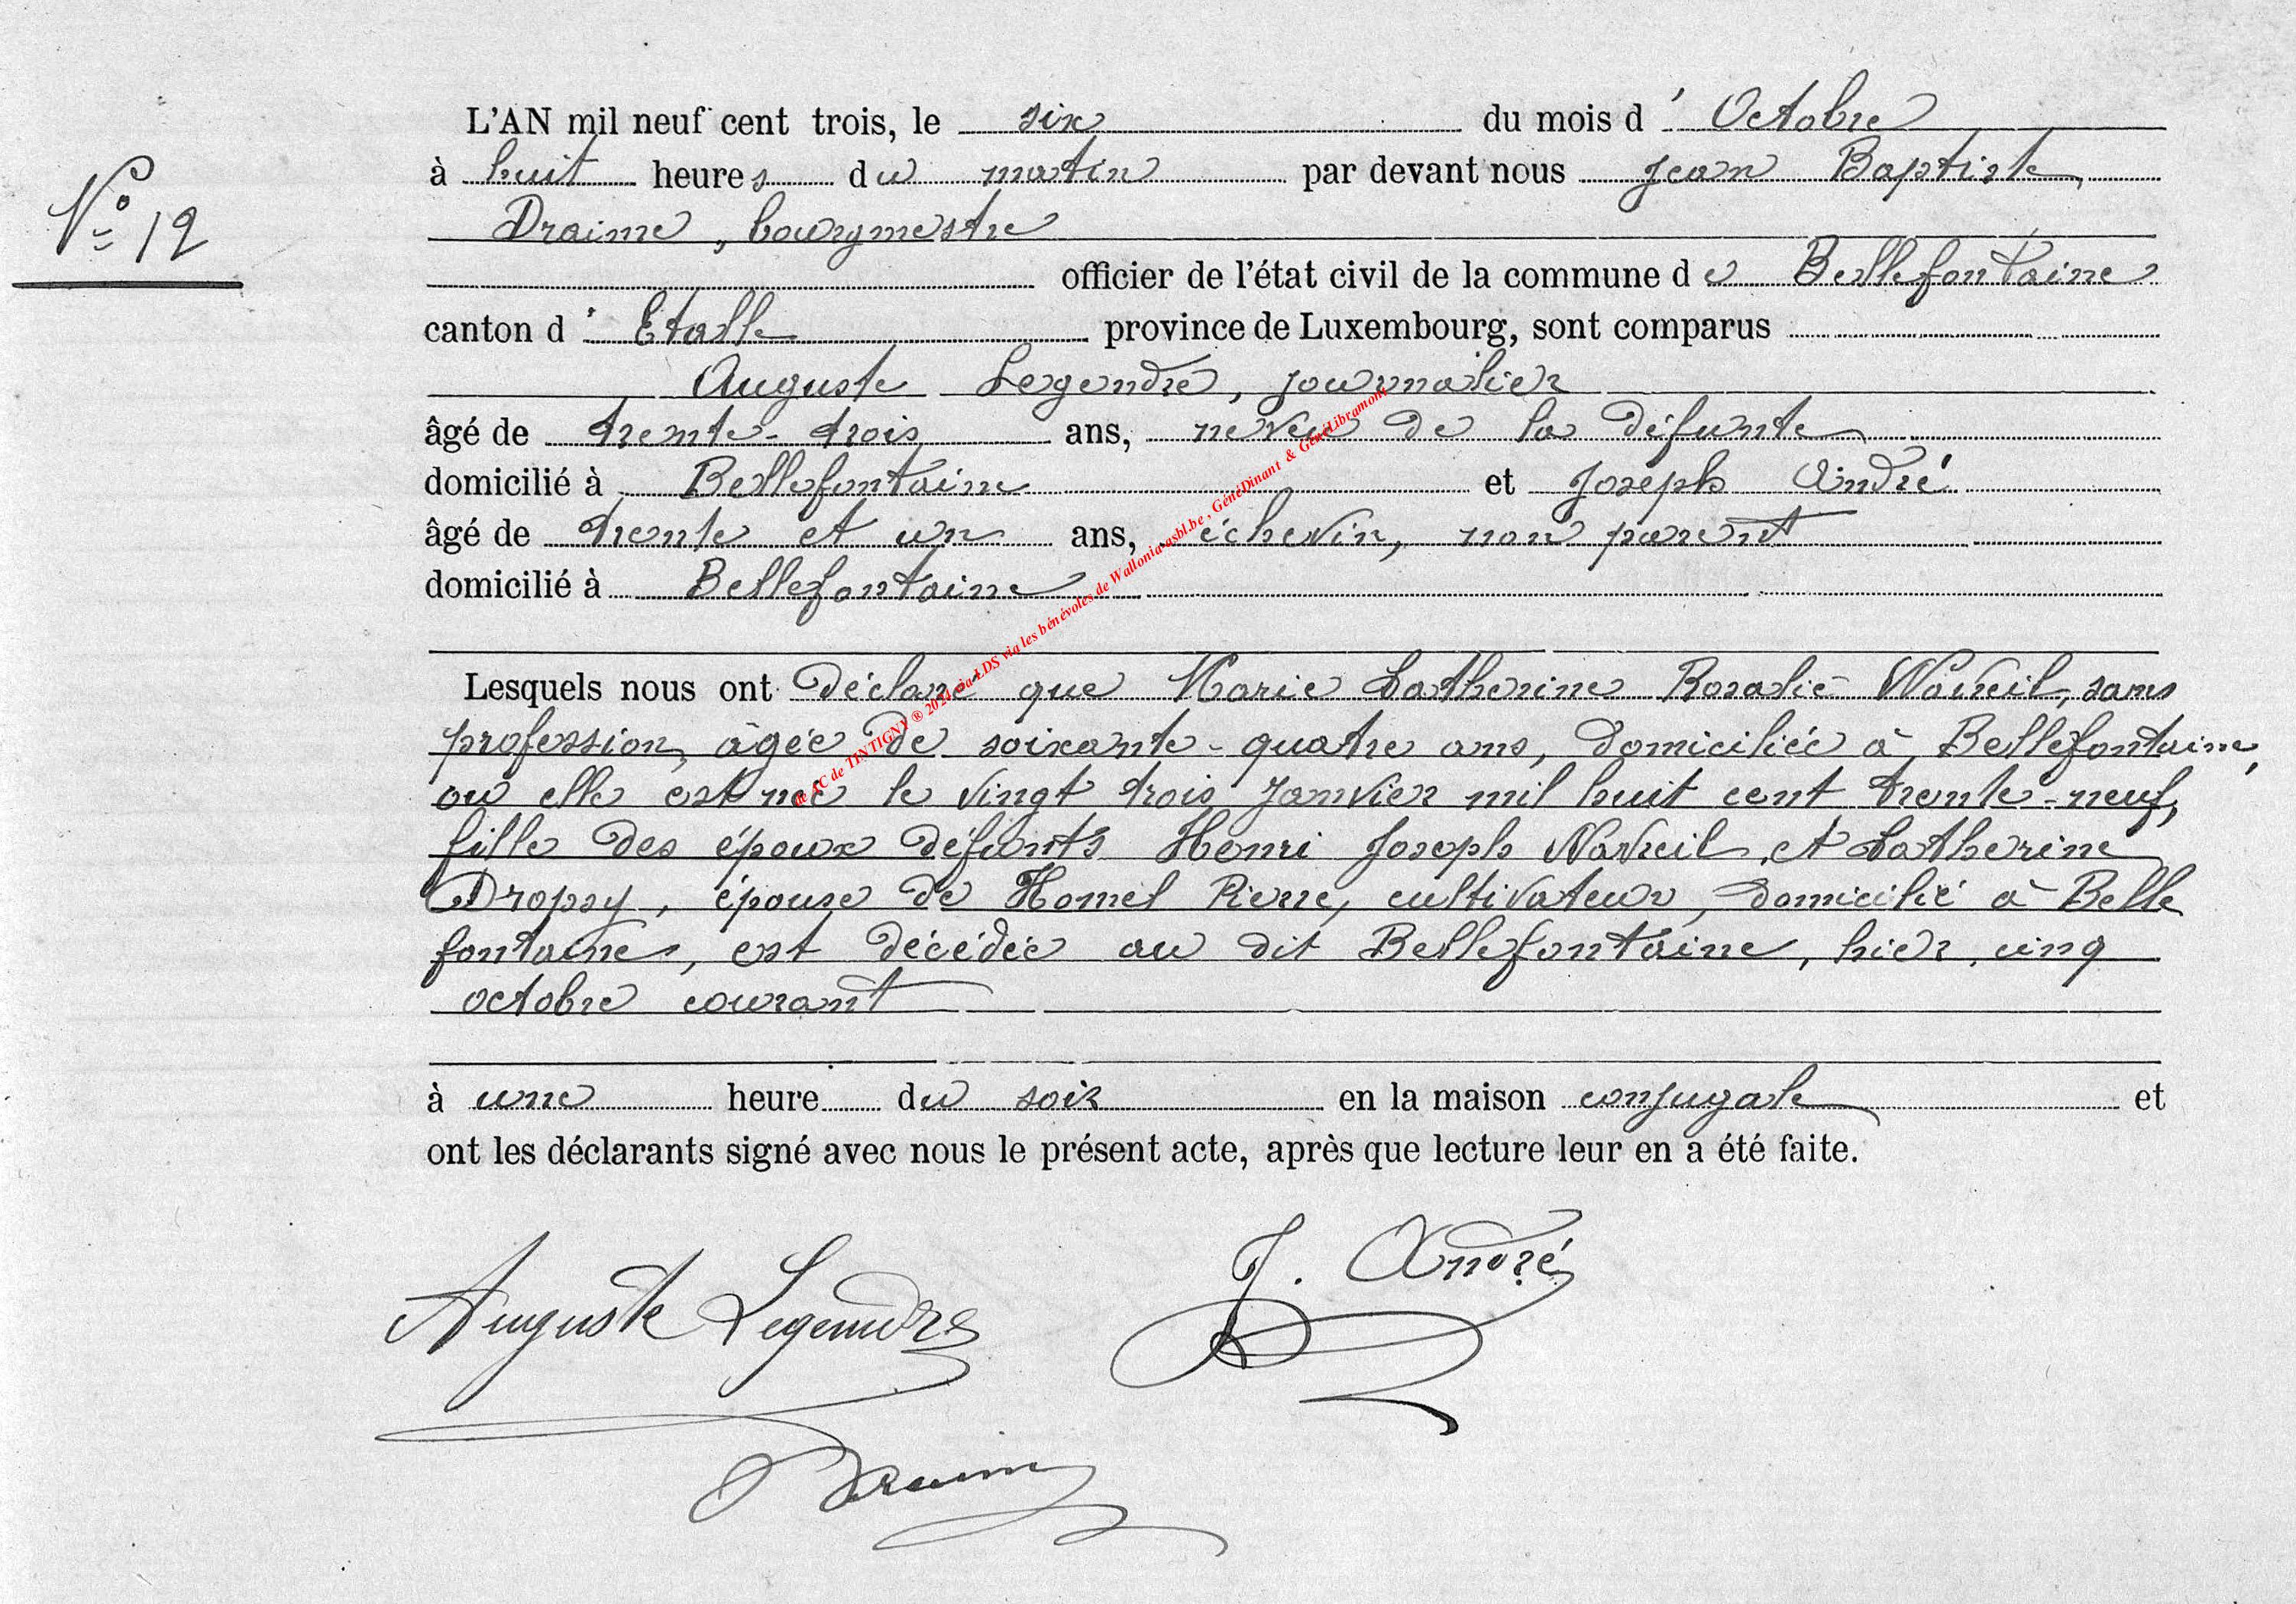 N° 12
L'AN mil neuf cent trois, le six du mois d' Octobre
à huit heures du matin par devant nous Jean Baptiste
Draime, bourgmestre
officier de l'état civil de la commune de Bellefontaine
canton d' Etalle province de Luxembourg, sont comparus
Auguste Legendre, journalier
âgé de trente-trois ans, neveu de la défunte
domicilié à Bellefontaine et Joseph André
âgé de trente et un ans, échevin, non parent
domicilié à Bellefontaine
Lesquels nous ont déclaré que Marie Catherine Rosalie sans
profession, âgée de soixante-quatre ans, domiciliée à Bellefontaine,
où elle est née le vingt trois Janvier mil huit cent trente-neuf,
fille des époux défunts Henri Joseph et Catherine
Dropsy, épouse de Hamel Pierre, cultivateur, domicilié à Belle
fontaine, est décédée au dit Bellefontaine, hier, cinq
octobre courant
à une heure du soir en la maison conjugale et
ont les déclarants signé avec nous le présent acte, après que lecture leur en a été faite.
Auguste Legendre J. André
Draime
de AC de TINTIGNY ® 2024 via LDS via les bénévoles de Wallonia-asbl.be, GénéDinant & GénéLibramont